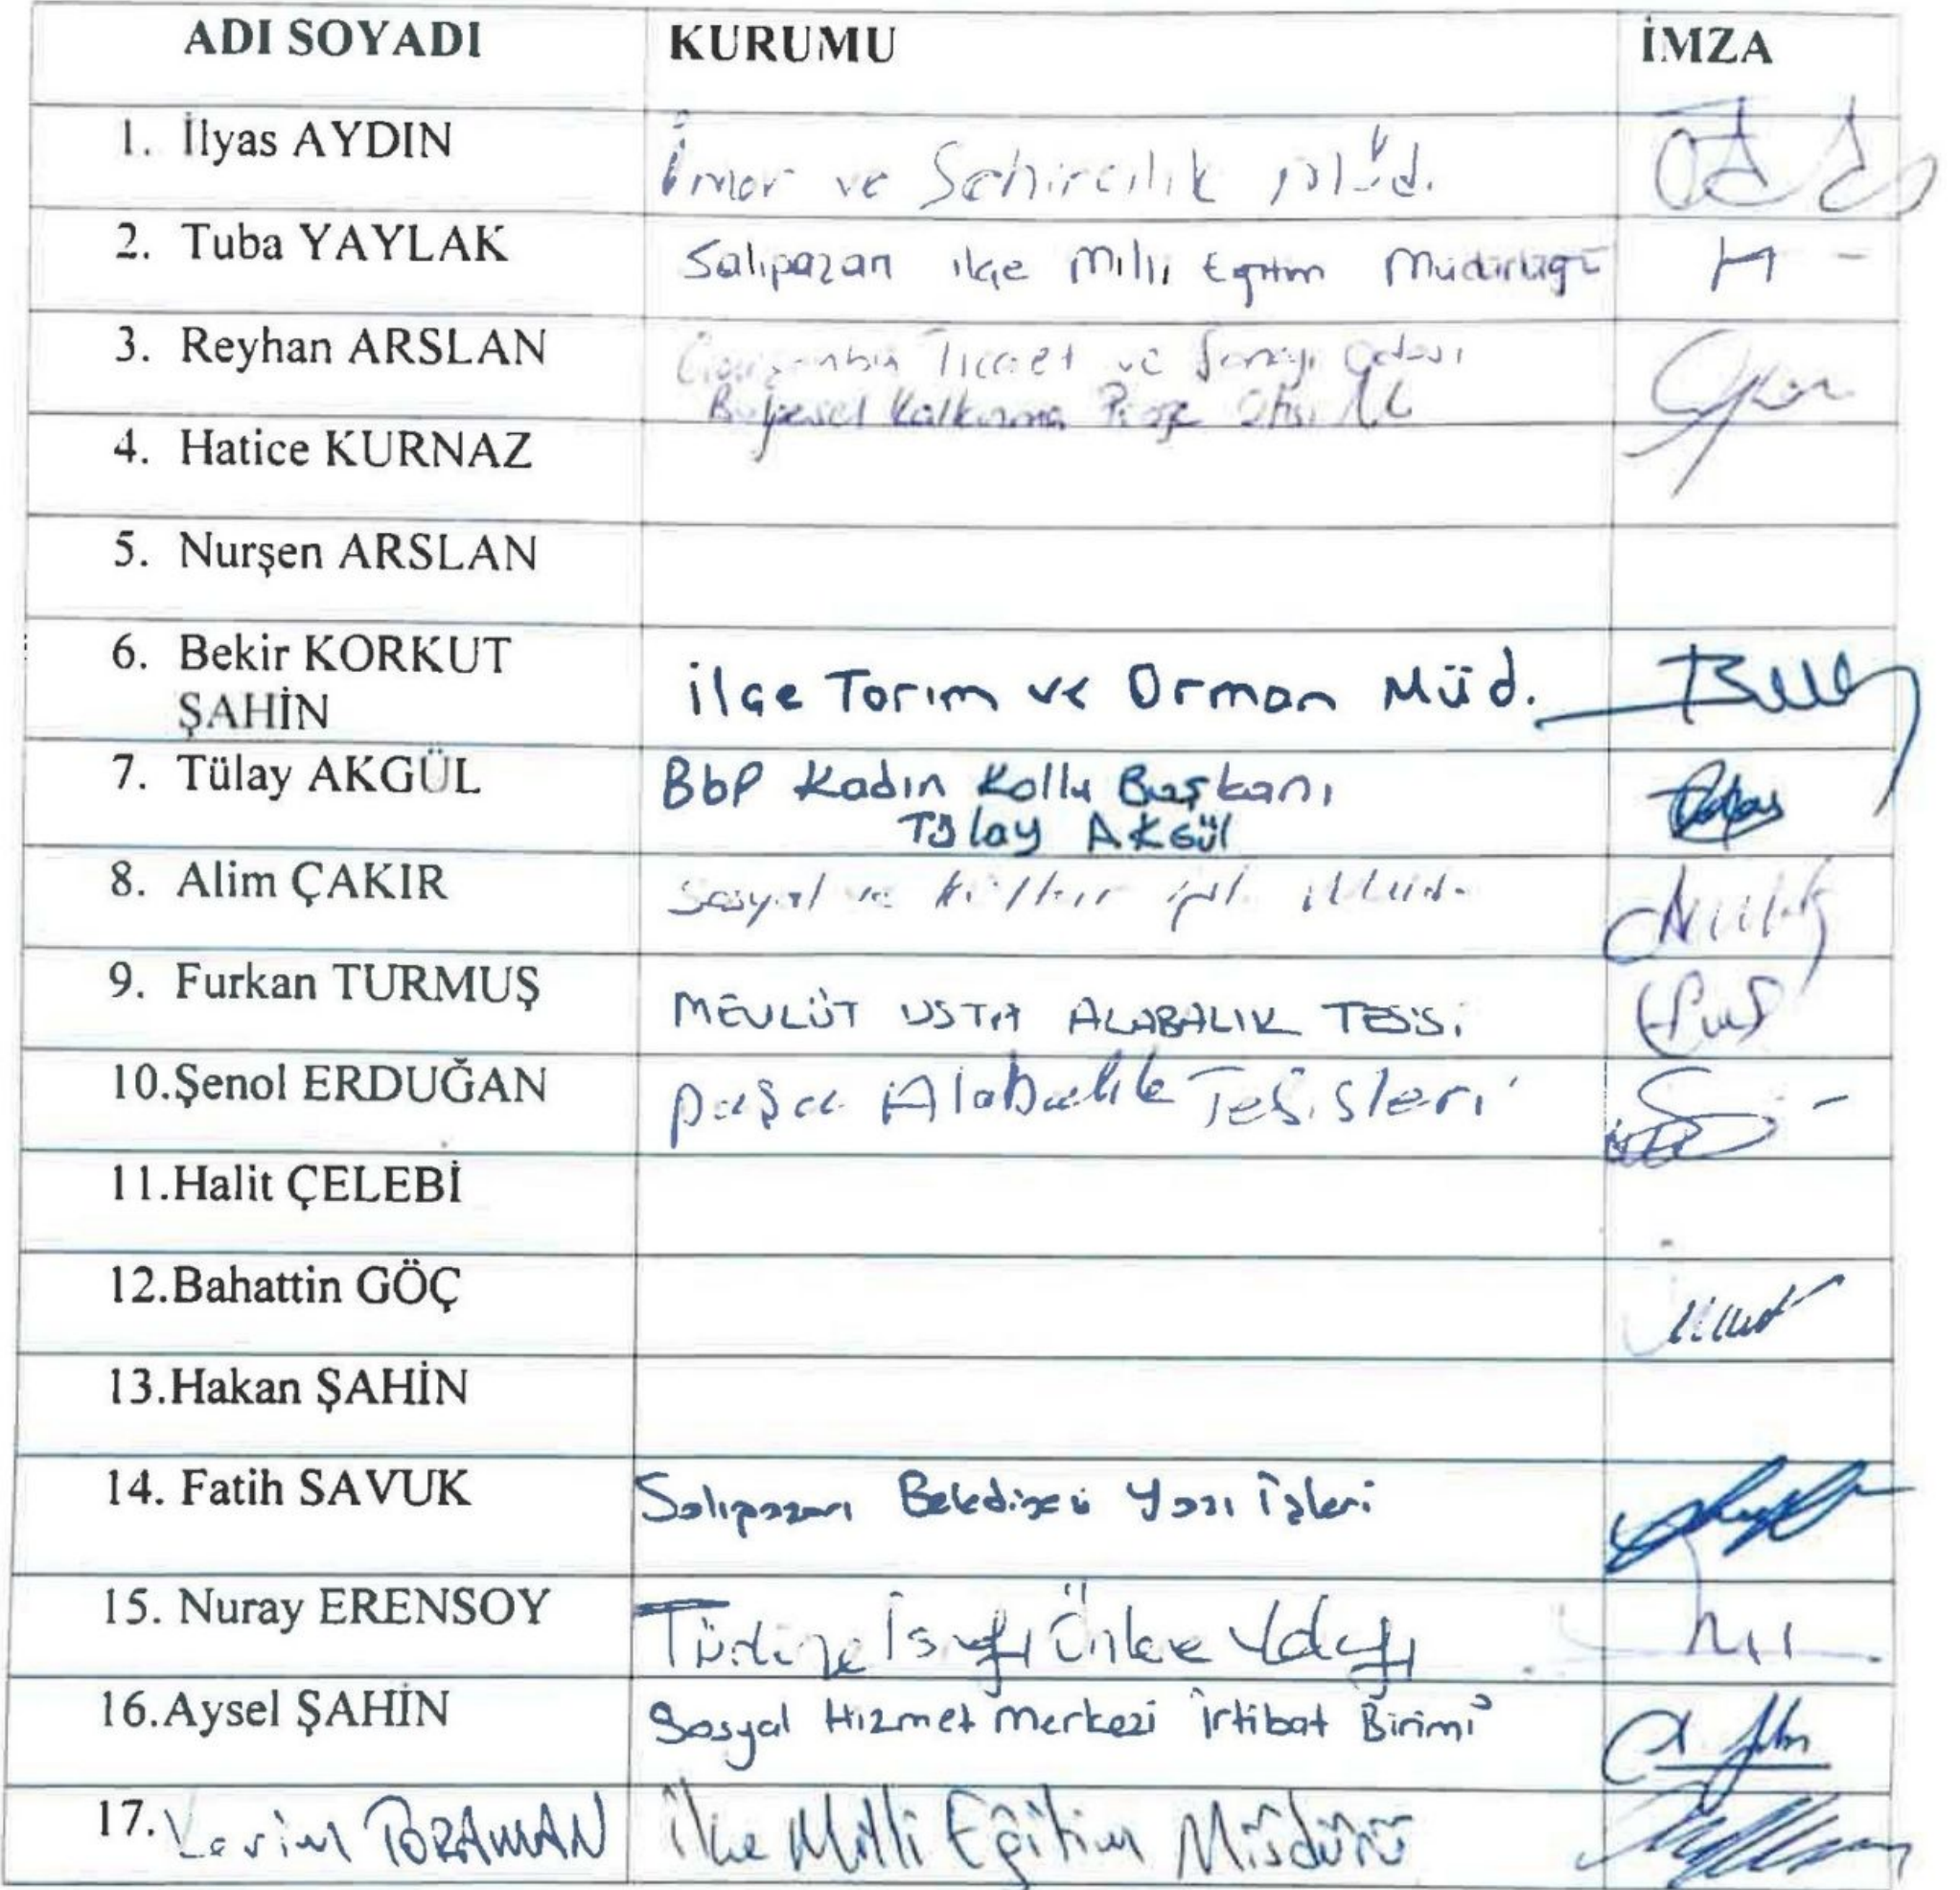 ADI SOYADI KURUMU İMZA
1. İlyas AYDIN İmar ve Şehircilik Müd.
2. Tuba YAYLAK Salıpazarı ilçe Milli Eğitim Müdürlüğü
3. Reyhan ARSLAN Ticaret ve Sanayi Odası
Bölgesel Kalkınma Proje Ofisi
4. Hatice KURNAZ
5. Nurşen ARSLAN
6. Bekir KORKUT
ŞAHİN
ilçe Tarım ve Orman Müd.
7. Tülay AKGÜL BbP Kadın Kolla Başkanı
Tülay AKGÜL
8. Alim ÇAKIR Sosyal ve Kültür
9. Furkan TURMUŞ MEVLÜT USTA ALABALIK TESİSİ
10.Şenol ERDUĞAN paşa Alabalık Tesisleri
11.Halit ÇELEBİ
12.Bahattin GÖÇ
13.Hakan ŞAHİN
14. Fatih SAVUK Salıpazarı Belediyesi Yazı İşleri
15. Nuray ERENSOY Türkiye İsrafı Önleme Vakfı
16.Aysel ŞAHİN Sosyal Hizmet Merkezi İrtibat Birimi
17. TORAMAN İlçe Milli Eğitim Müdürü